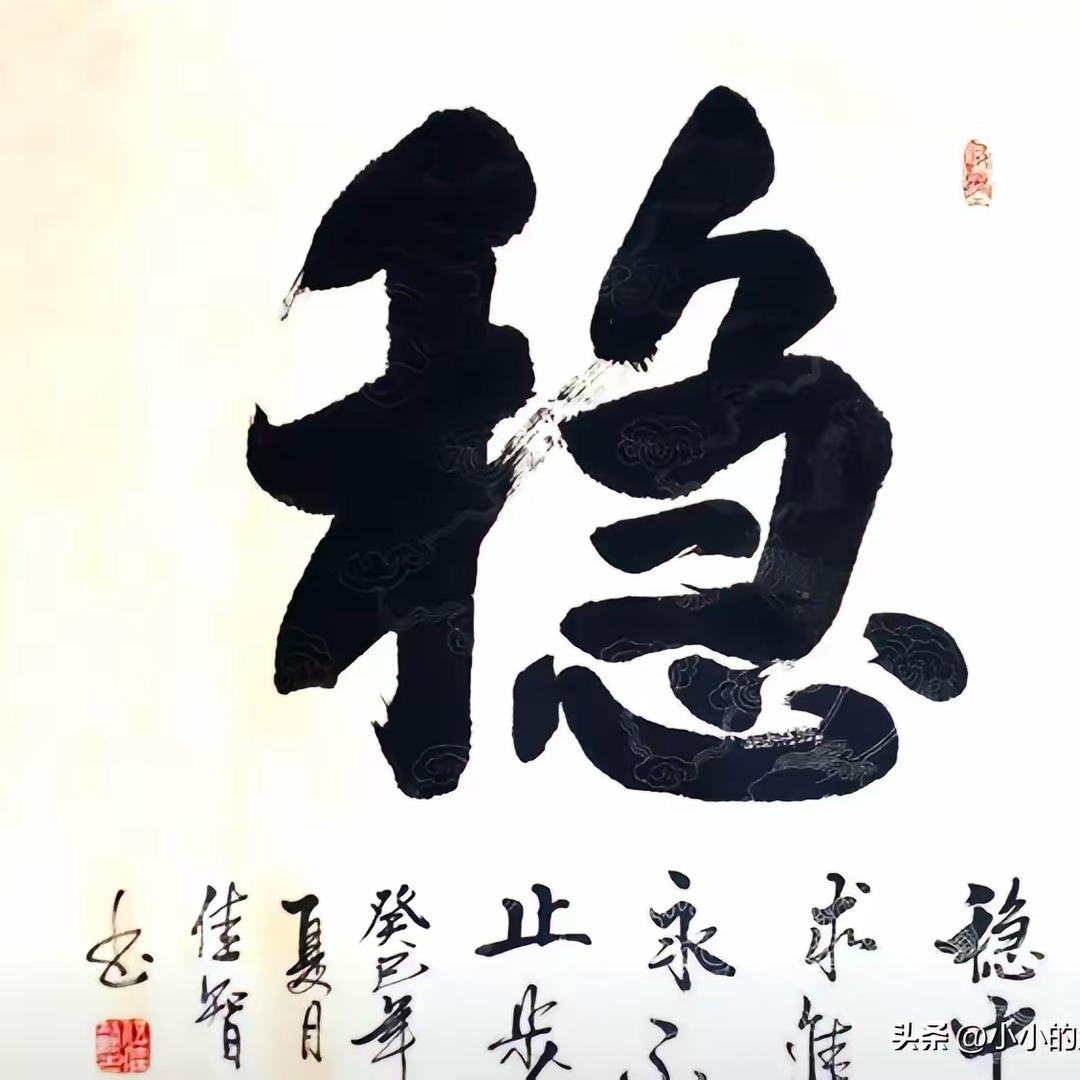 稳
稳中
求進
永不
止步
癸巳年
夏月
佳智
书
头条 @小小的